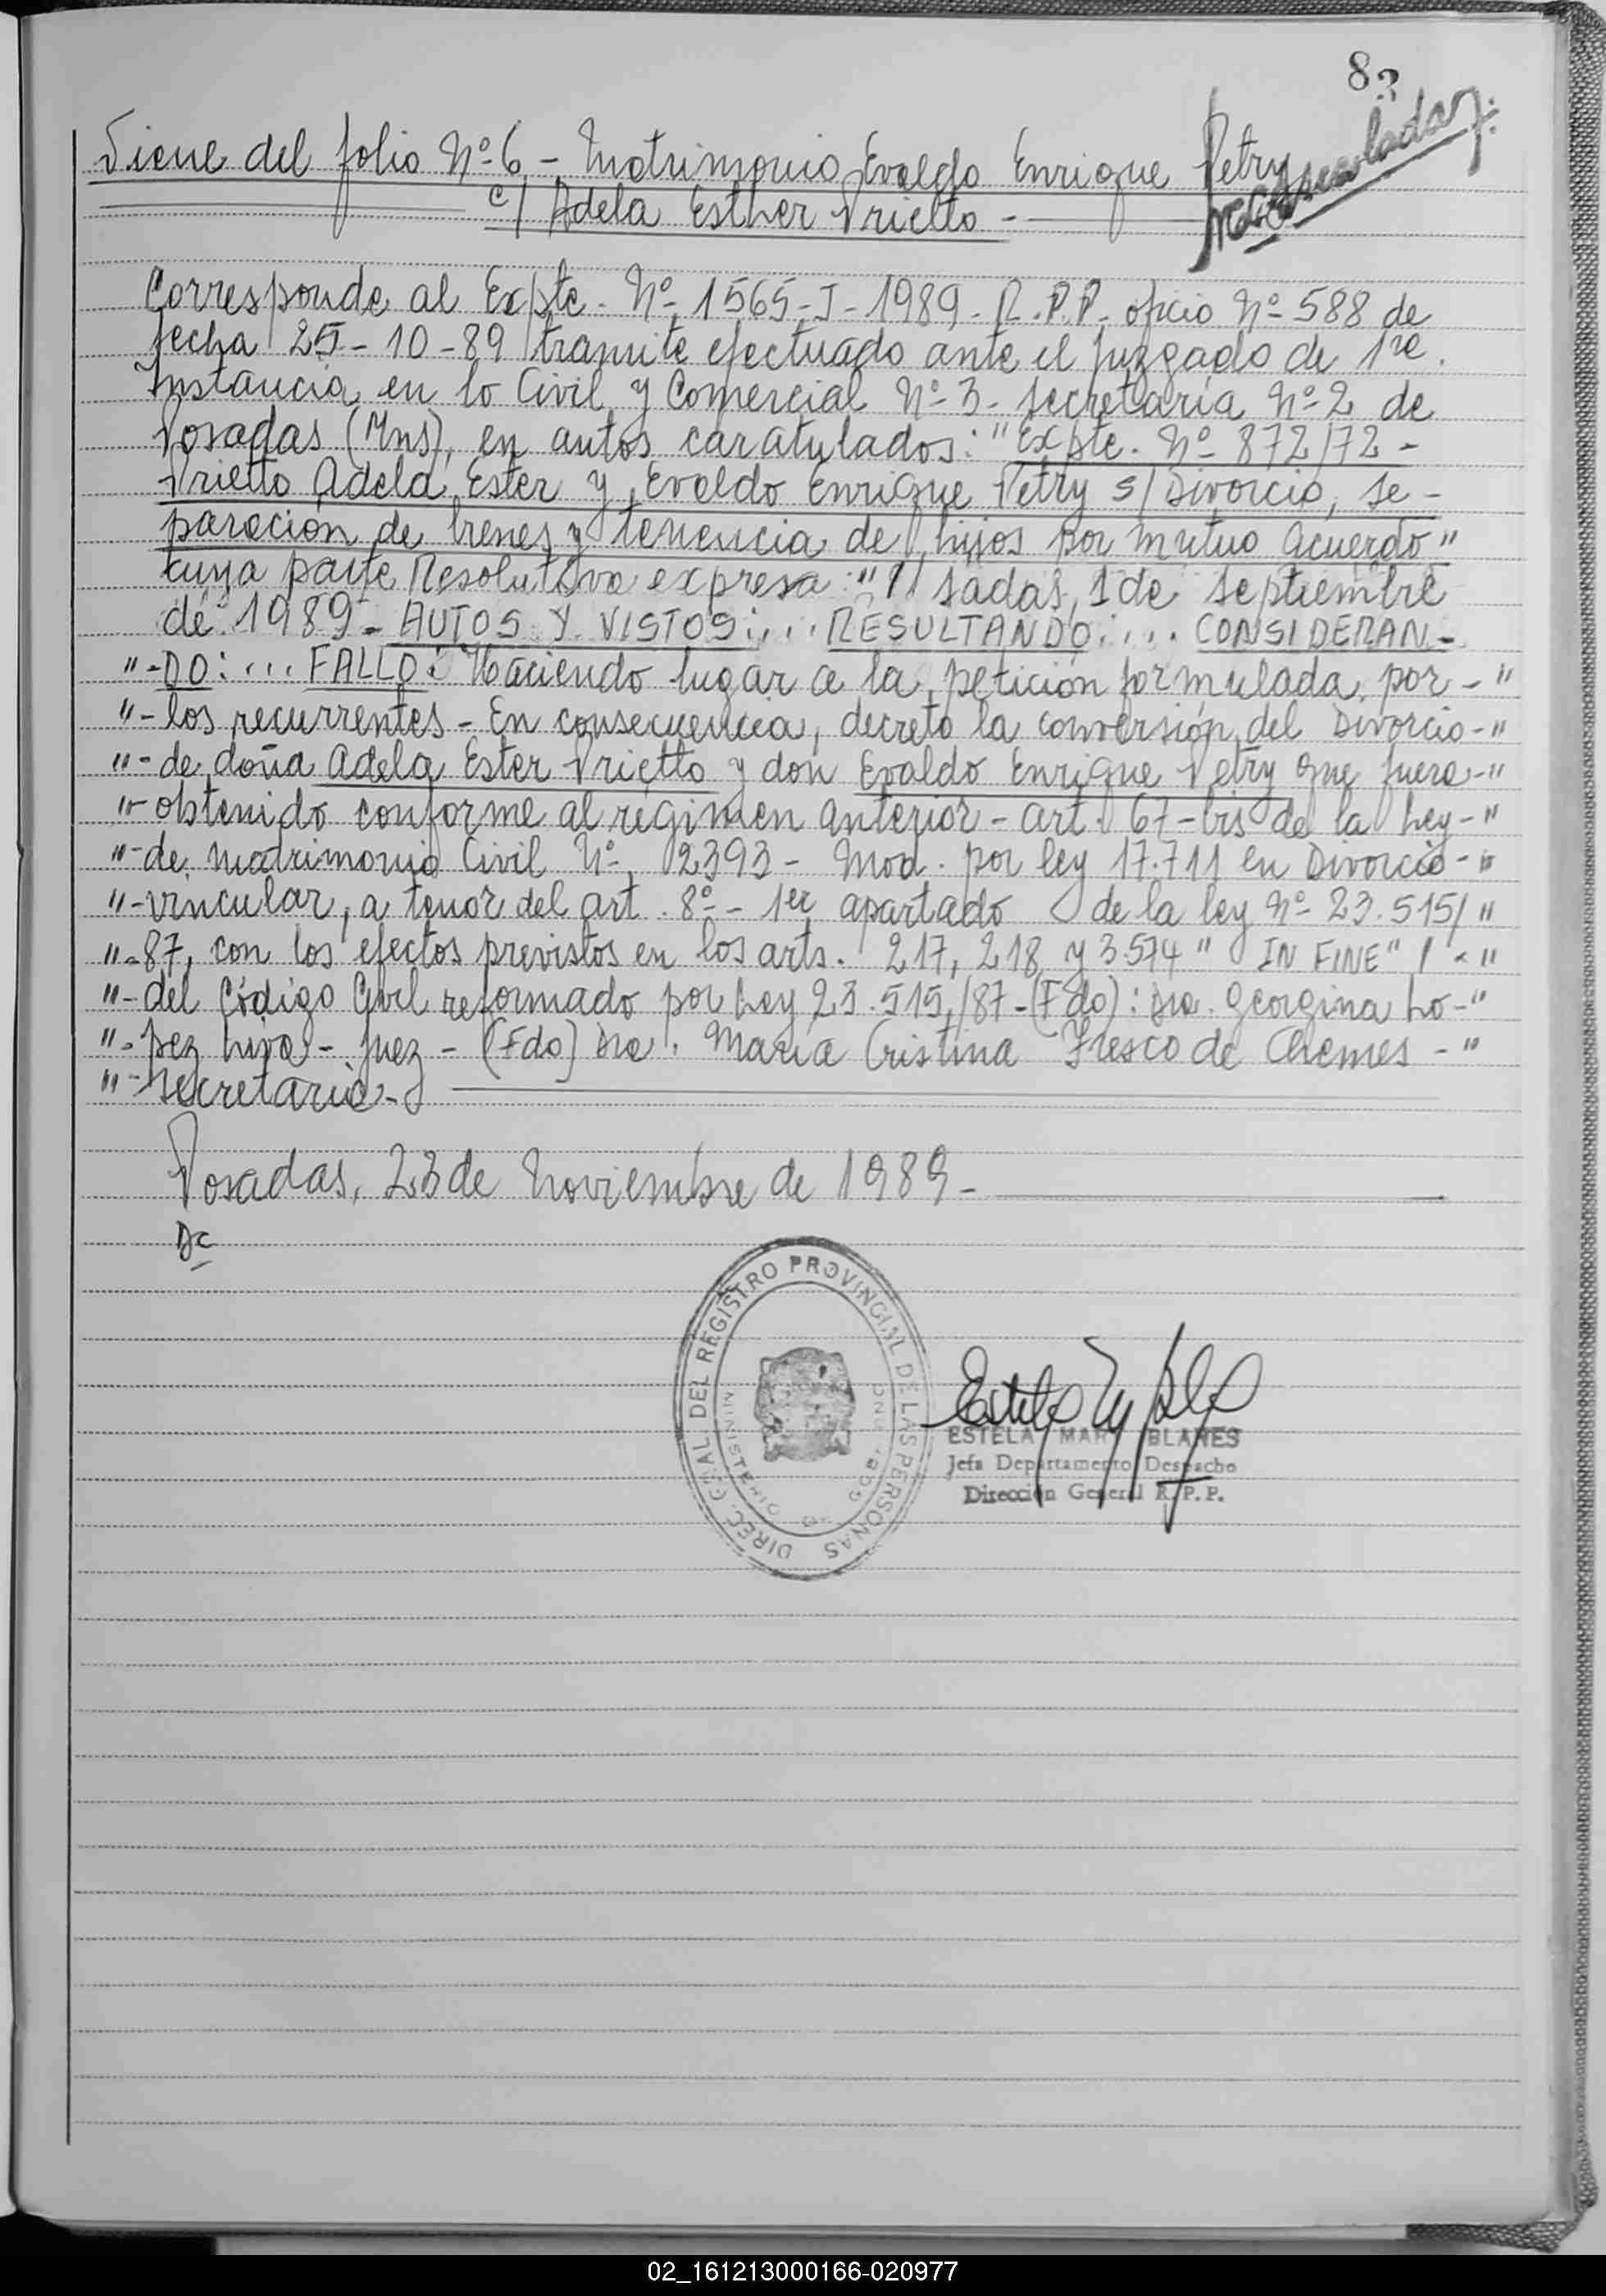 83
Viene del folio Nº 6 - Matrimonio Evaldo Enrique Petry
c/ Adela Esther Prietto -
Corresponde al Expte. Nº 1565-I-1989- R.P.P. oficio Nº 588 de
fecha 25-10-89 tramite efectuado ante el Juzgado de 1ra.
Instancia en lo Civil y Comercial Nº 3- Secretaría Nº 2 de
Posadas (Mns), en autos caratulados: "Expte. Nº 872/72 -
Prietto Adela Ester y Evaldo Enrique Petry s/ Divorcio, Se-
paración de bienes y tenencia de hijos por mutuo acuerdo"
cuya parte Resolutiva expresa: "// sadas, 1 de Septiembre
de 1989- AUTOS Y VISTOS:... RESULTANDO:... CONSIDERAN-
"-DO:... FALLO: Haciendo lugar a la petición formulada por -"
"- los recurrentes - En consecuencia, decreto la conversión del Divorcio -"
"- de doña Adela Ester Prietto y don Evaldo Enrique Petry que fuera -"
"- obtenido conforme al régimen anterior - art. 67-bis de la Ley -"
"- de Matrimonio Civil Nº 2393 - Mod. por ley 17.711 en Divorcio -"
"- vincular, a tenor del art. 8º - 1er apartado de la ley Nº 23.515/"
"- 87, con los efectos previstos en los arts. 217, 218 y 3.574 " IN FINE" / - "
"- del Código Civil reformado por Ley 23.515/87 - (Fdo): Dra. Georgina Lo-"
"- pez Liva - Juez - (Fdo) Dra. María Cristina Fresco de Chemes -"
"- Secretaria -
Posadas, 23 de Noviembre de 1989 -
Dc
DIREC. GRAL DEL REGISTRO PROVINCIAL DE LAS PERSONAS
MINISTERIO DE GOBIERNO
ESTELA MARY BLANES
Jefa Departamento Despacho
Dirección General R.P.P.
02_161213000166-020977